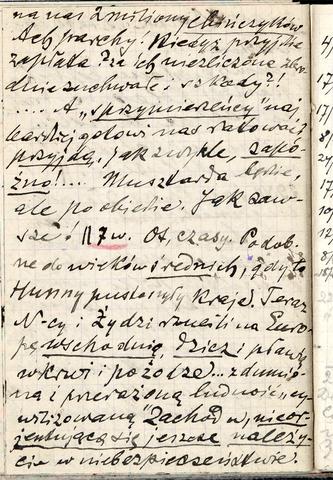 na nas 2 miliony
Ach parchy! Kiedyż przyjdzie
zapłata? za ich niezliczone zbro-
dnie zuchwałe i szkody?!
.... A „sprzymierzeńcy" naj
bardziej gotowi nas ratować
przyjdą, jak zwykle, zapó-
źno!.... Musztarda będzie,
ale po obiedzie. Jak zaw-
sze! 7 w. Ot, czasy. Podob-
ne do wieków średnich, gdy to
Hunny pustoszyły kraje. Teraz
N-cy i Żydzi na Euro-
pę wschodnią dzicz i pławią
w krwi i pożodze... zdumio-
na i przerażona ludność „cy
wilizowaną" Zachód w, nieor-
jentującą się jeszcze należy-
cie w niebezpieczeństwie.